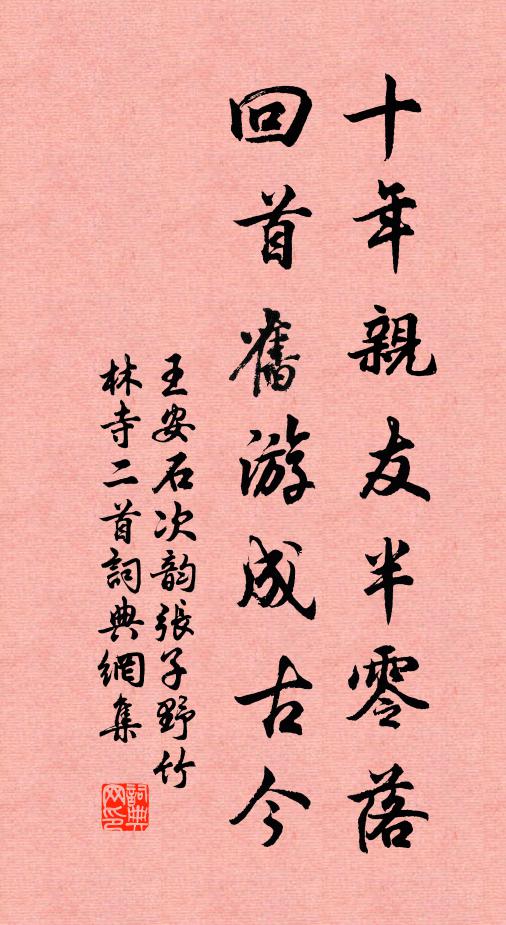 十年親友半零落
回首舊游成古今
王安石次韵張子野竹
林寺二首詞典網集
詞典
网印